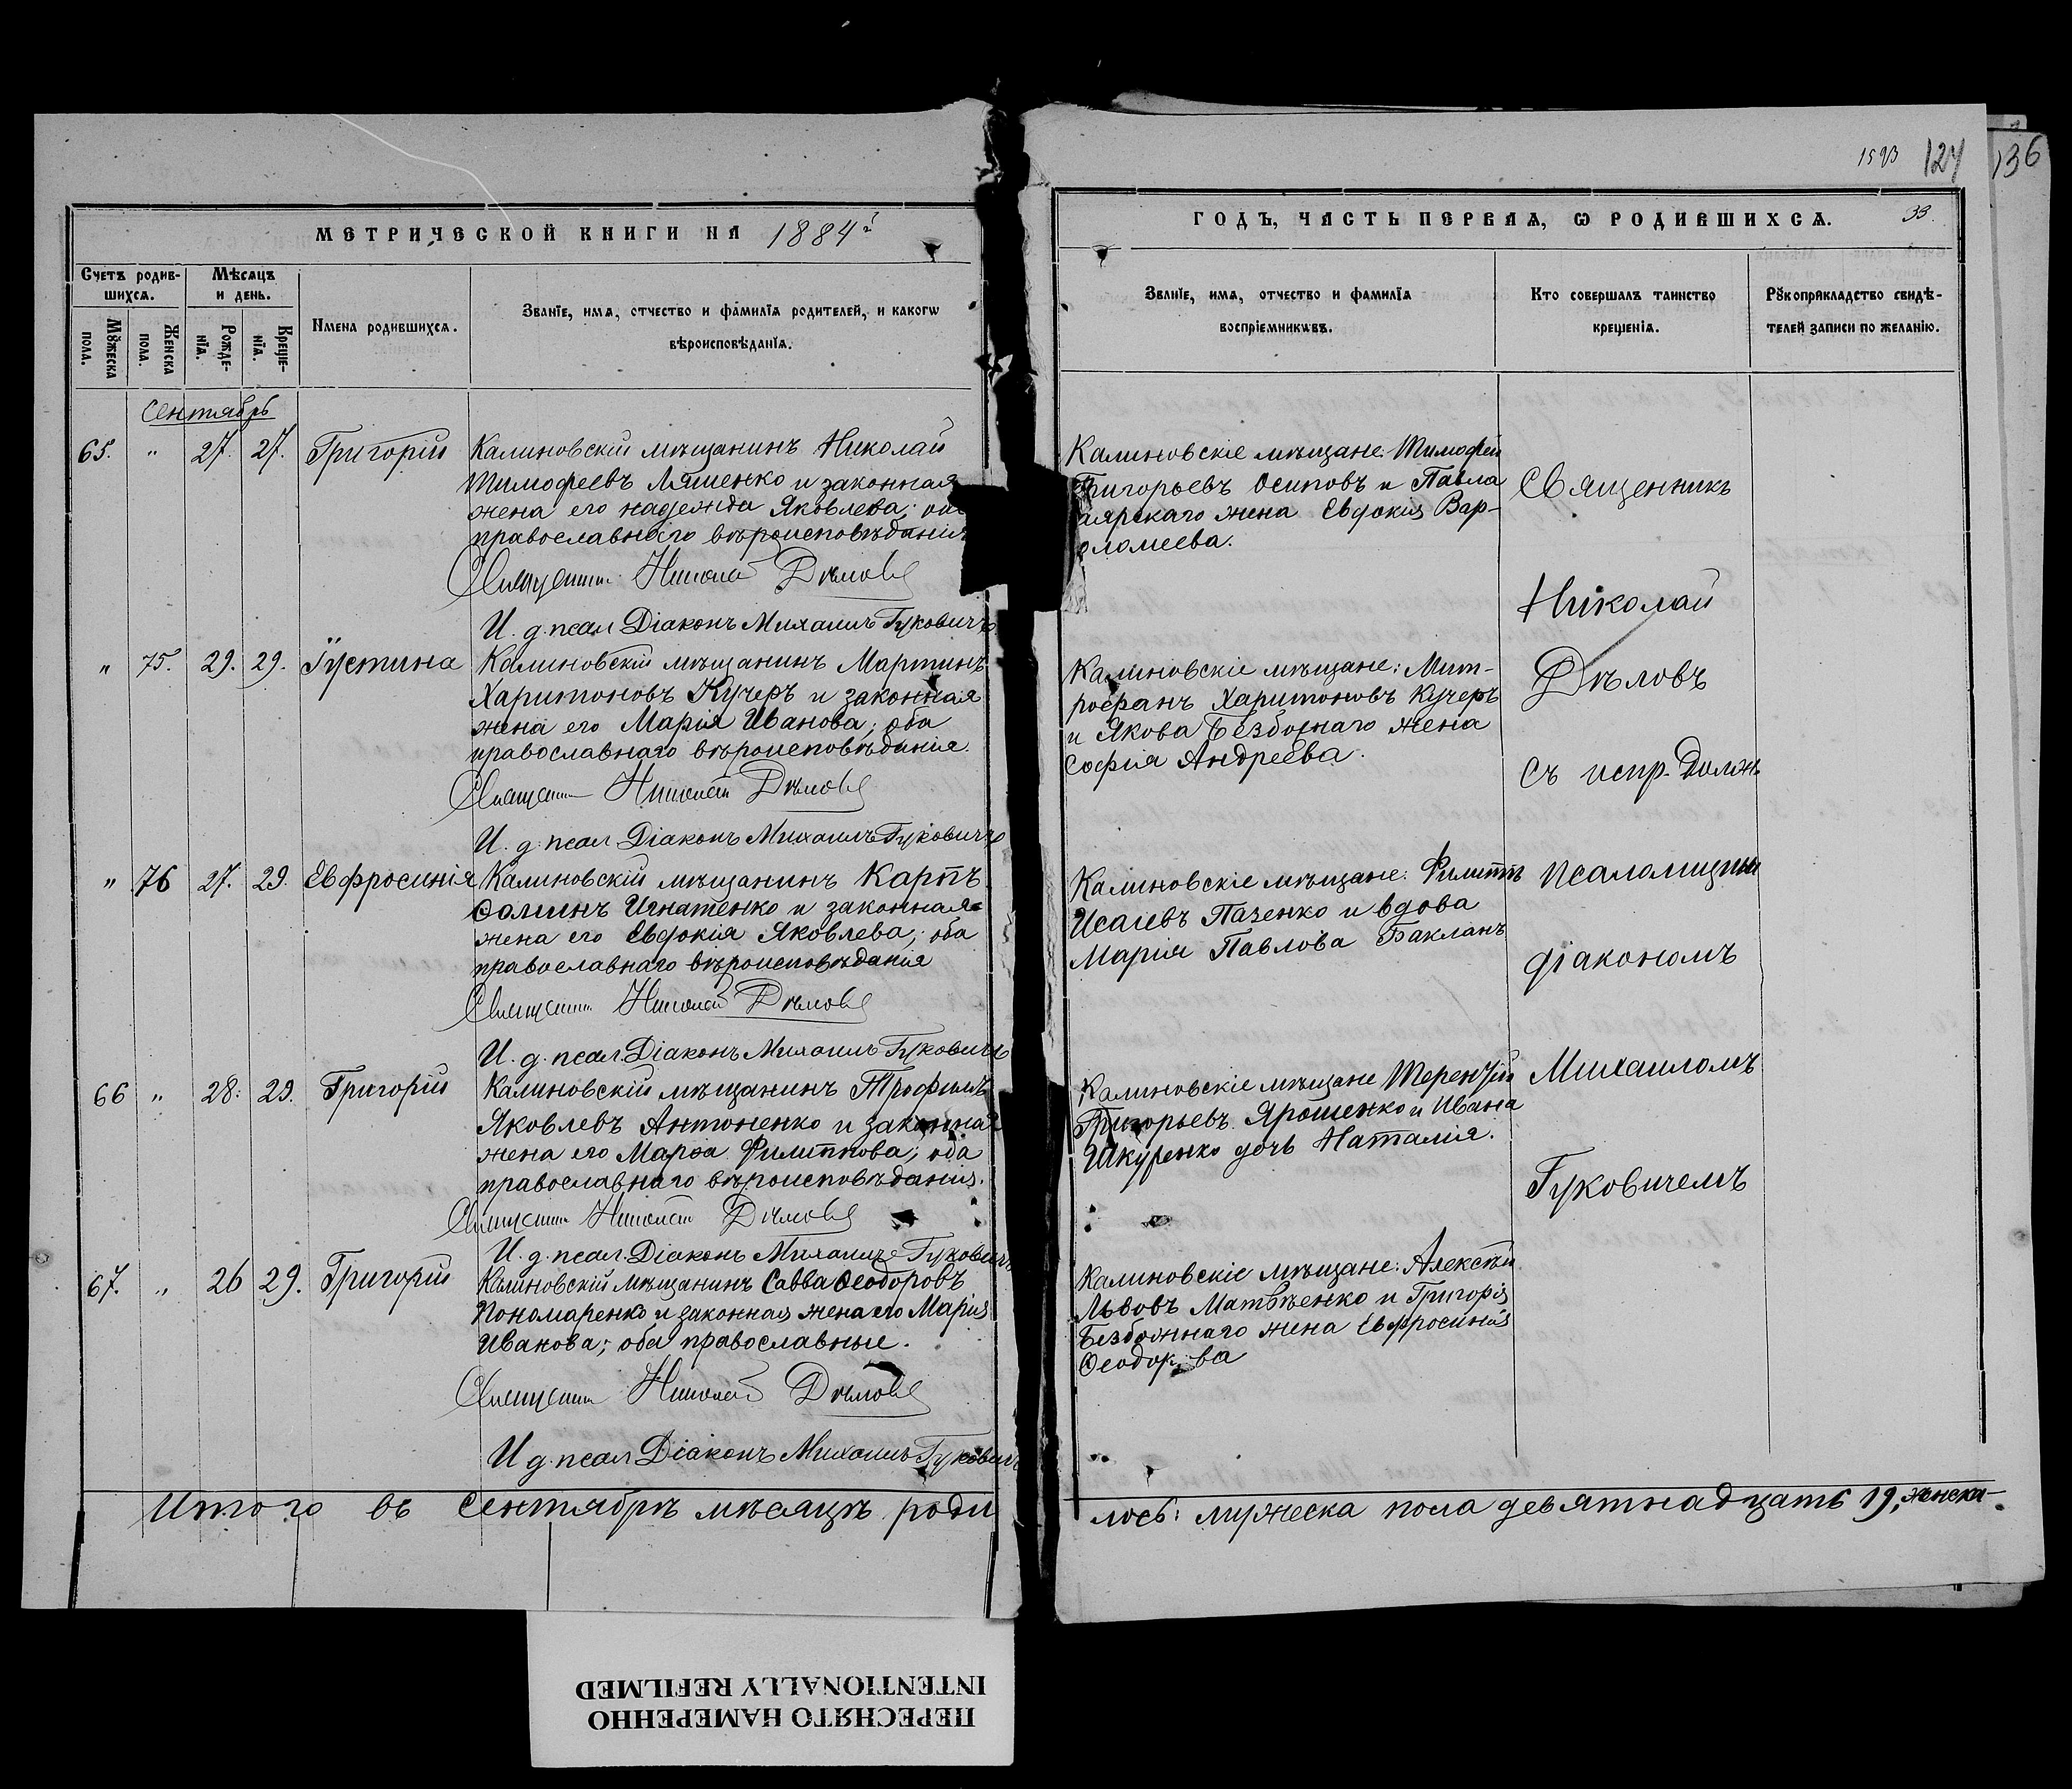 1593 124 136
МЕТРИЧЕСКОЙ КНИГИ НА 1884й
ГОДЪ, ЧАСТЬ ПЕРВАЯ, Ѡ РОДИВШИХСЯ. 33.
Счетъ родив-
шихся.
Мѣсяцъ
и день.
Мꙋжеска
пола.
Женска
пола.
Рожде-
нїя.
Креще-
нїя.
Имена родившихся.
Званїе, имя, отчество и фамилїя родителей, и какогѡ
вѣроисповѣданїя.
Званїе, имя, отчество и фамилїя
воспрїемникѡвъ.
Кто совершалъ таинство
крещенїя.
Рꙋкоприкладство свидѣ-
телей записи по желанїю.
Сентябрь
65. " 27. 27. Григорій
Калиновскій мѣщанинъ Николай
Тимофеевъ Ляшенко и законная
жена его Надежда Яковлева;
православнаго вѣроисповѣданія
Священникъ Николай Дѣловъ
И. д. псал. Діаконъ Михаилъ Гуковичъ
Калиновскіе мѣщане: Тимофей
Григорьевъ Осиповъ и Павла
жена Евдокія Вар-
оломеева.
" 75. 29. 29. Іустина
Калиновскій мѣщанинъ Мартинъ
Харитоновъ Кучеръ и законная
жена его Марія Иванова; оба
православнаго вѣроисповѣданія.
Священникъ Николай Дѣловъ
И. д. псал. Діаконъ Михаилъ Гуковичъ
Калиновскіе мѣщане: Мит-
рофанъ Харитоновъ Кучеръ
и Якова Безбожнаго жена
Софія Андреева.
" 76 27. 29. Евфросинія
Калиновскій мѣщанинъ Карпъ
Ѳоминъ Игнатенко и законная
жена его Евдокія Яковлева; оба
православнаго вѣроисповѣданія
Священникъ Николай Дѣловъ
И. д. псал. Діаконъ Михаилъ Гуковичъ
Калиновскіе мѣщане: Филиппъ
Исаіевъ Пазенко и вдова
Марія Павлова Бакланъ
66 " 28. 29. Григорій
Калиновскій мѣщанинъ Трофимъ
Яковлевъ Антоненко и законная
жена его Марѳа Филиппова; оба
православнаго вѣроисповѣданія.
Священникъ Николай Дѣловъ
И. д. псал. Діаконъ Михаилъ Гуковичъ
Калиновскіе мѣщане Терентій
Григорьевъ Ярошенко и Ивана
Шкуренко дочь Наталія.
67. " 26 29. Григорій
Калиновскій мѣщанинъ Савва Ѳеодоровъ
Пономаренко и законная жена его Марія
Иванова; оба православные.
Священникъ Николай Дѣловъ
И д. псал Діаконъ Михаилъ Гуковичъ
Калиновскіе мѣщане: Алексѣй
Львовъ Матвѣенко и Григорія
Безбожнаго жена Евфросинія
Ѳеодорова
Священникъ
Николай
Дѣловъ
Съ испр. Долж.
псаломщика
діакономъ
Михаиломъ
Гуковичемъ
Итого въ Сентябрѣ мѣсяцѣ роди
лось: мужеска пола девятнадцать 19, женска
ПЕРЕСНЯТО НАМЕРЕННО
INTENTIONALLY REFILMED